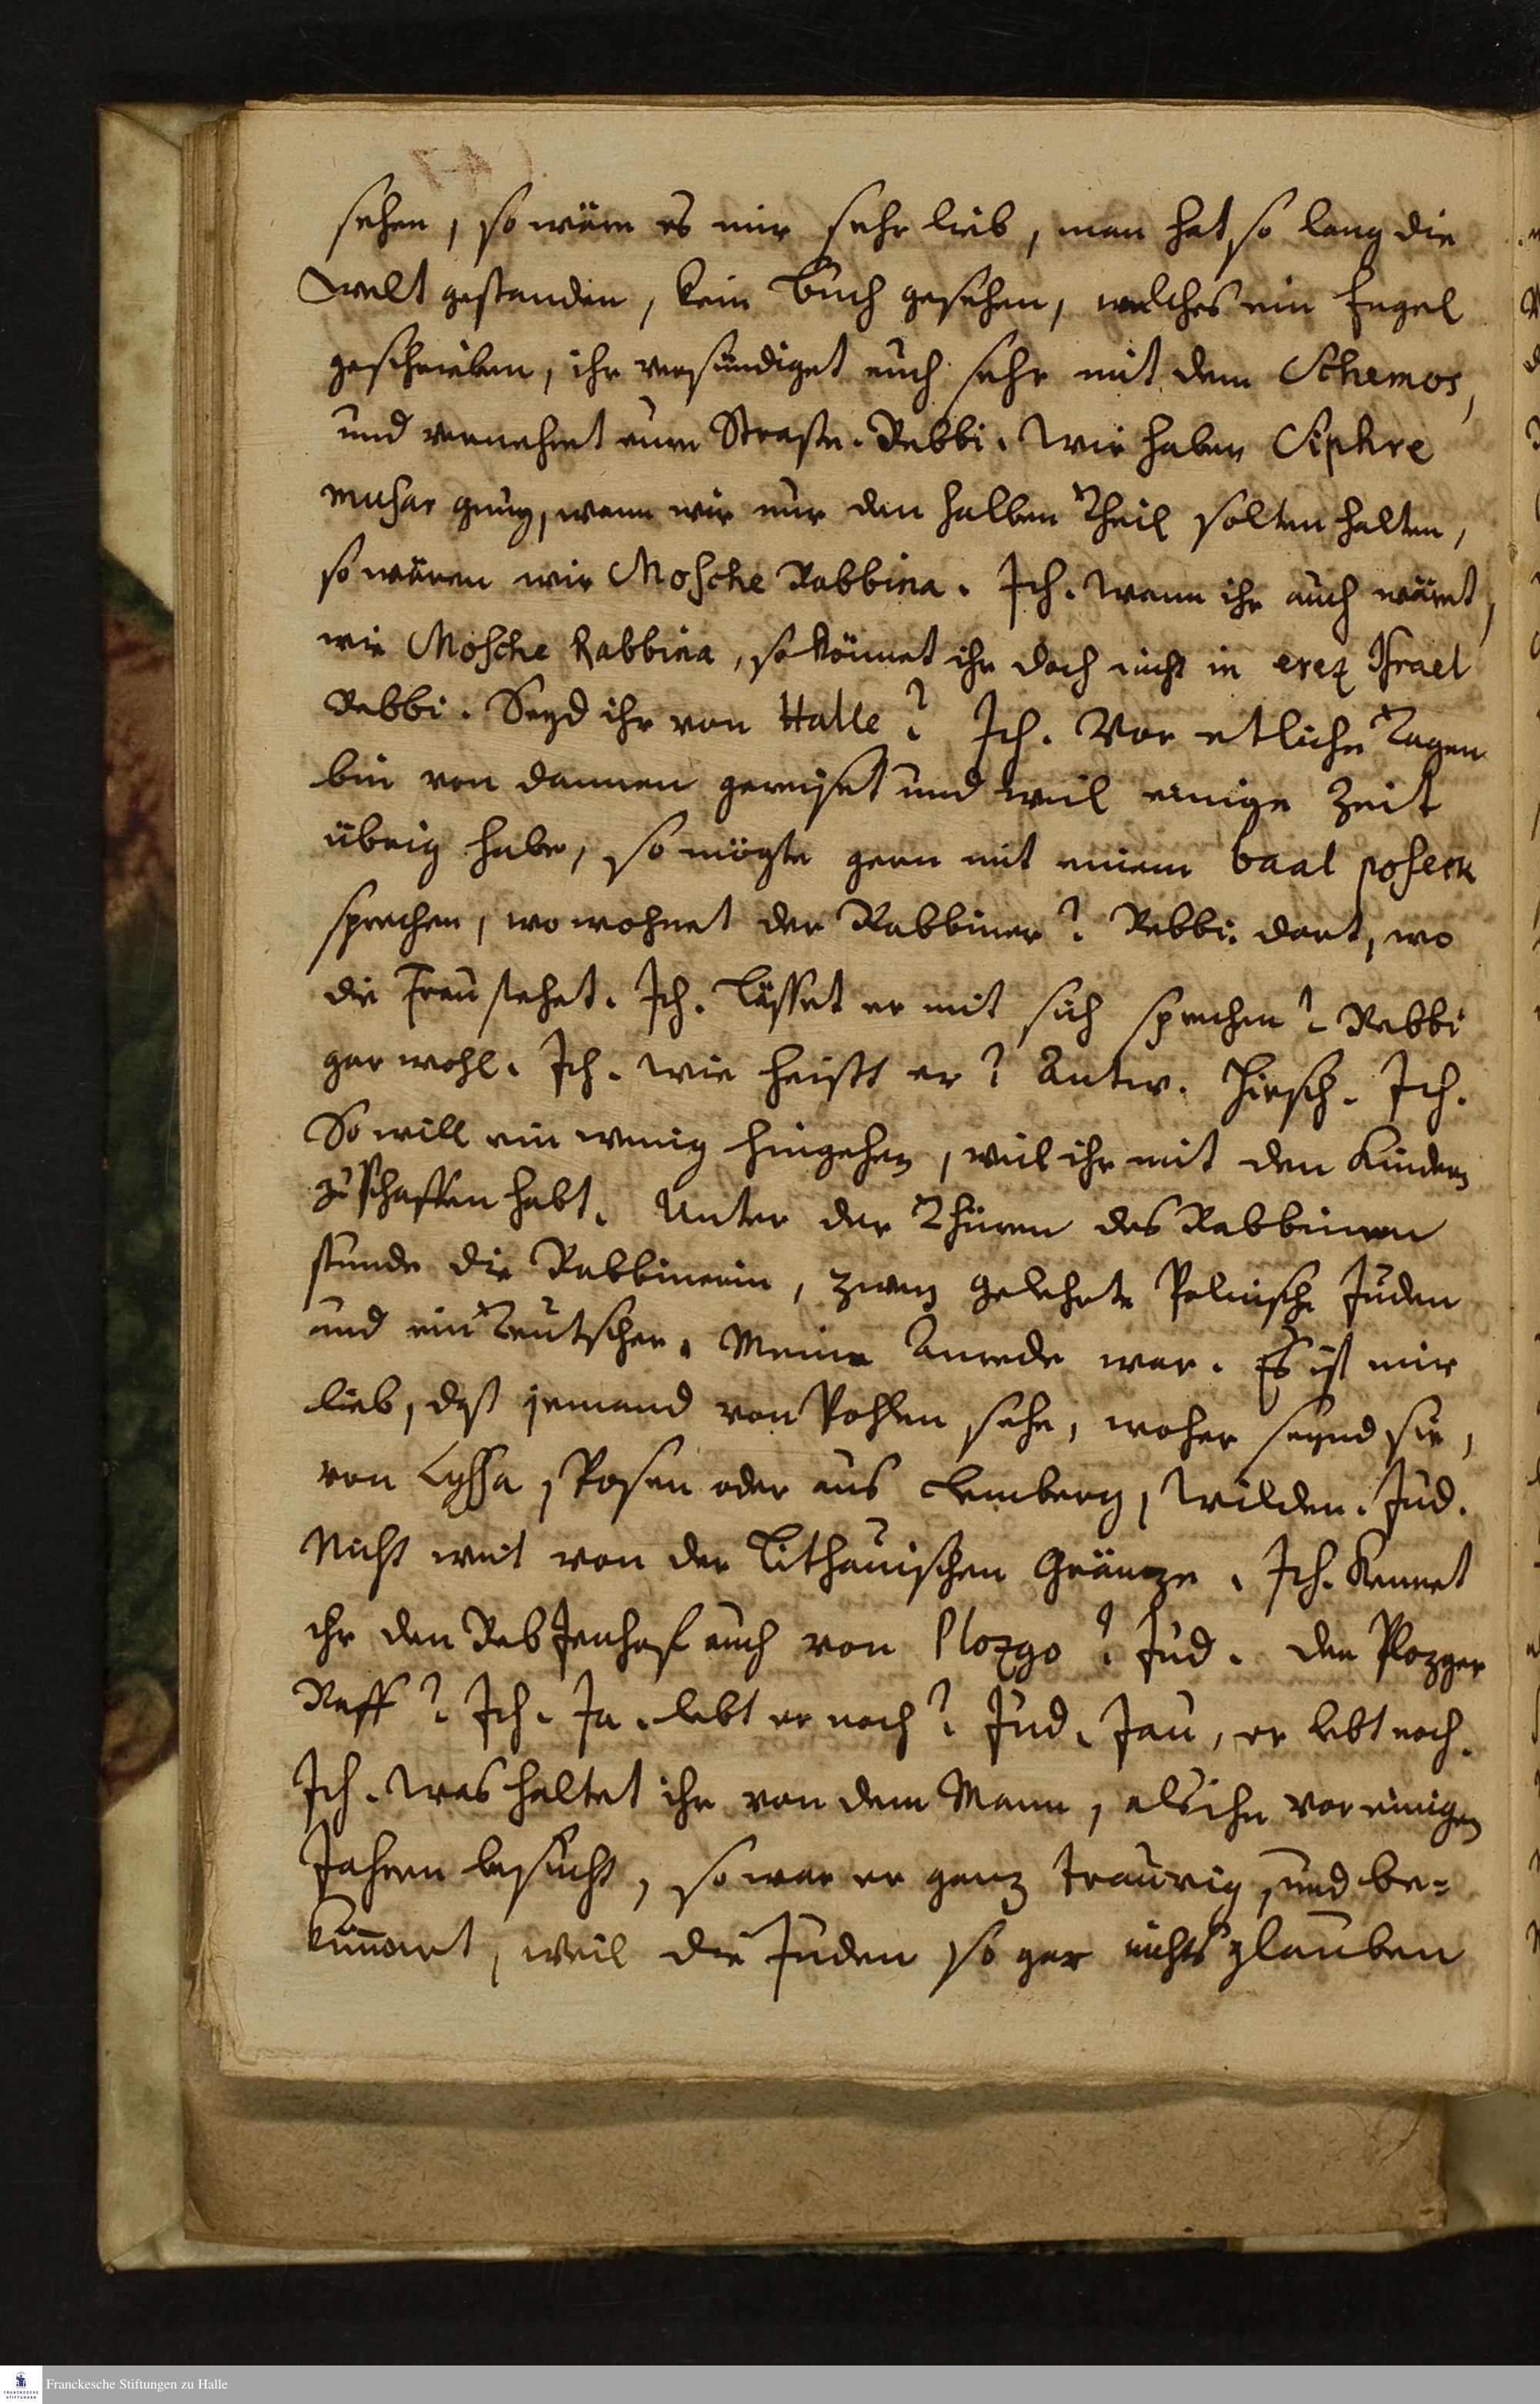 sehen, so wäre es mir sehr lieb, man hat, so lang die
Welt gestanden, kein Buch gesehen, welches ein Engel
geschrieben, ihr versündiget euch sehr mit dem Schemos,
und vermehret eure Straffe. Rebbi. Wir haben Siphre
musar genug, wenn wir nur den halben Theil solten halten,
so wären wir Mosche Rabbina. Ich. Wann ihr auch wäret,
wie Mosche Rabbina, so könnet ihr doch nicht in erez Israel
Rebbi. Seyd ihr von Halle? Ich. Vor etlichen Tagen
bin von dannen gereiset und weil einige Zeit
übrig habe, so mögte gern mit einem baal poseck
sprechen, wo wohnet der Rabbiner? Rebbi: dort, wo
die Frau stehet. Ich. Lässet er mit sich sprechen? Rebbi
gar wohl. Ich. Wie heisst er? Antw. Hirsch. Ich.
So will ein wenig hingehen, weil ihr mit den Kindern
zu schaffen habt. Unter der Thüren des Rabbinen
stunde die Rabbinerin, zwey gelehrte Polnische Juden
und ein Teutscher. Meine Anrede war. Es ist mir
lieb, daß jemand von Pohlen sehe, woher seynd sie,
von Lyssa, Posen oder aus Lemberg, Wilden. Jud.
Nicht weit von der Lithauischen Gränze. Ich. Kennet
ihr den Reb auch von Plozgo? Jud. Den Plozger
Raff? Ich. Ja. lebt er noch? Jud. Jau, er lebt noch.
Ich. Was haltet ihr von dem Mann, als ihn vor einigen
Jahren besucht, so war er ganz traurig, und be-
kümmert, weil die Juden so gar nichts glauben
Franckesche Stiftungen zu Halle